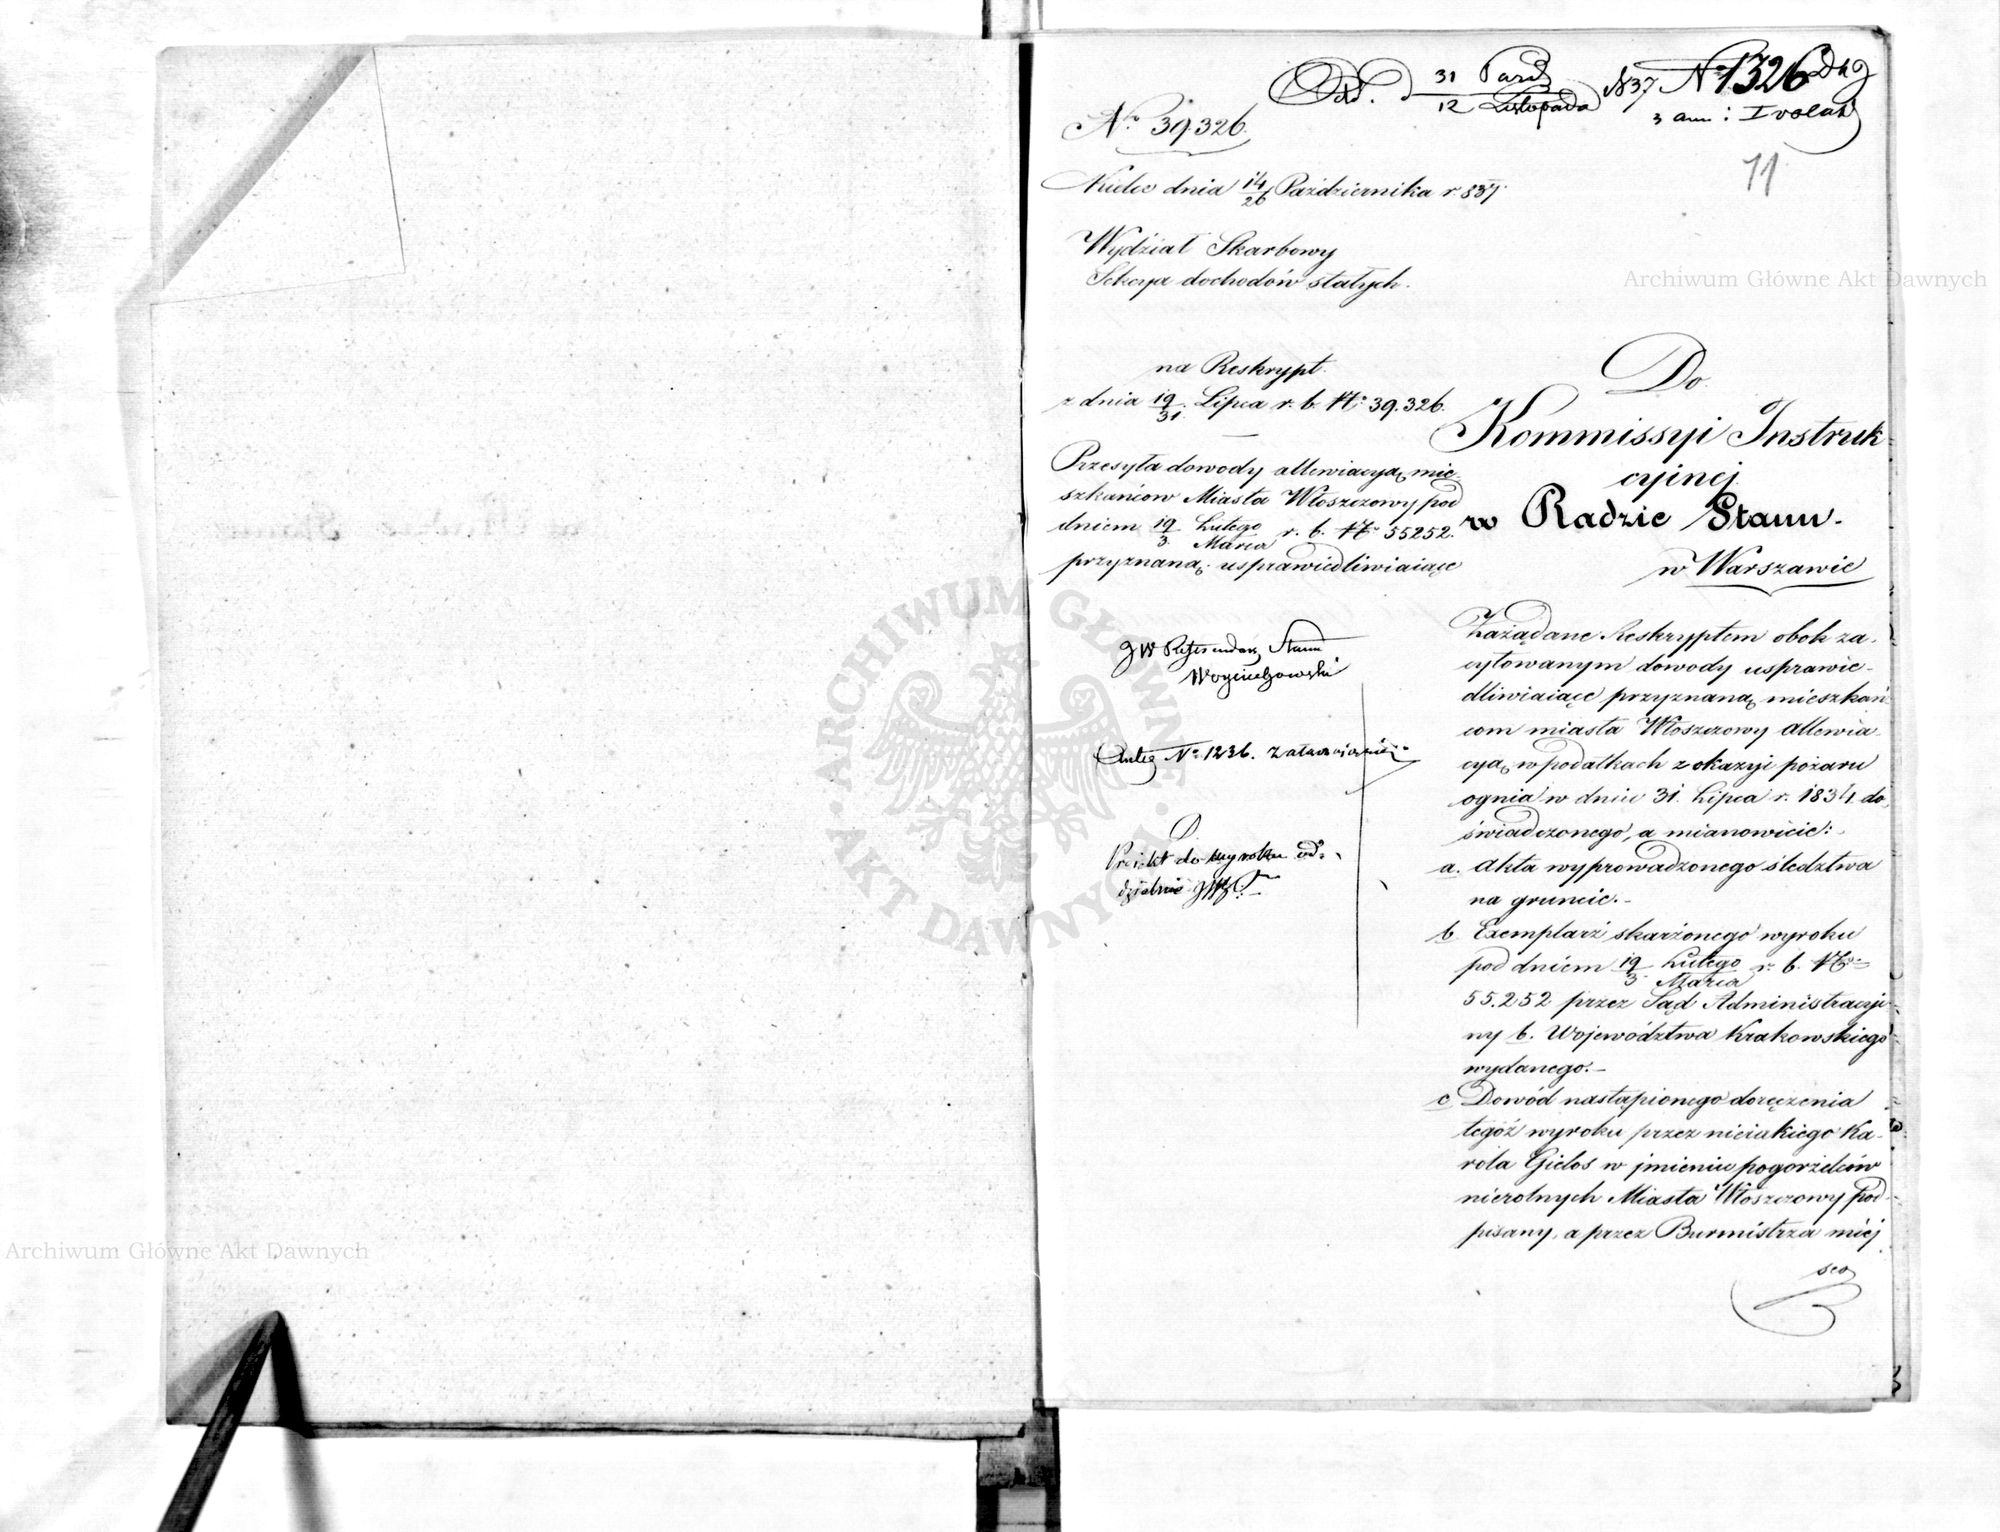 Odd. d 31 Paźdz / 12 Listopada 1837 N° 1326
3 ann: I volu
N° 39326.
11
Kielce dnia 14/26 Października r. 837.
Wydział Skarbowy
Sekcya dochodów stałych.
na Reskrypt.
z dnia 19/31. Lipca r. b. N° 39.326.
Przesyła dowody allewiacyą mie-
szkańcow Miasta Włoszczowy pod
dniem 19/3 Lutego/Marca r. b. N° 55252.
przyznaną, usprawiedliwiaiące
Do
Kommissyi Instruk-
cyjnej
w Radzie Stanu.
w Warszawie
JW Referendarz Stanu
Woyciechowski
Antea N° 1236. załatwioney
Proiekt do wyroku od-
dzielnie
Zażądane Reskryptem obok za-
cytowanym dowody usprawie-
dliwiaiące przyznaną mieszkań-
com miasta Włoszczowy allewia-
cyą w podatkach z okazyi pożaru
ognia w dniu 31. Lipca r. 1834 do-
świadczonego, a mianowicie:
a. Akta wyprowadzonego śledztwa
na gruncie.-
b. Exemplarz skarżonego wyroku
pod dniem 19/3. Lutego/Marca r. b. N°
55.252 przez Sąd Administracyi-
ny b. Województwa Krakowskiego
wydanego.-
c Dowód nastąpionego doręczenia
tegóż wyroku przez nieiakiego Ka-
rola Gielos w jmieniu pogorzelców
nierolnych Miasta Włoszczowy pod-
pisany, a przez Burmistrza miej
sco
Archiwum Główne Akt Dawnych
Archiwum Główne Akt Dawnych
ARCHIWUM GŁÓWNE AKT DAWNYCH